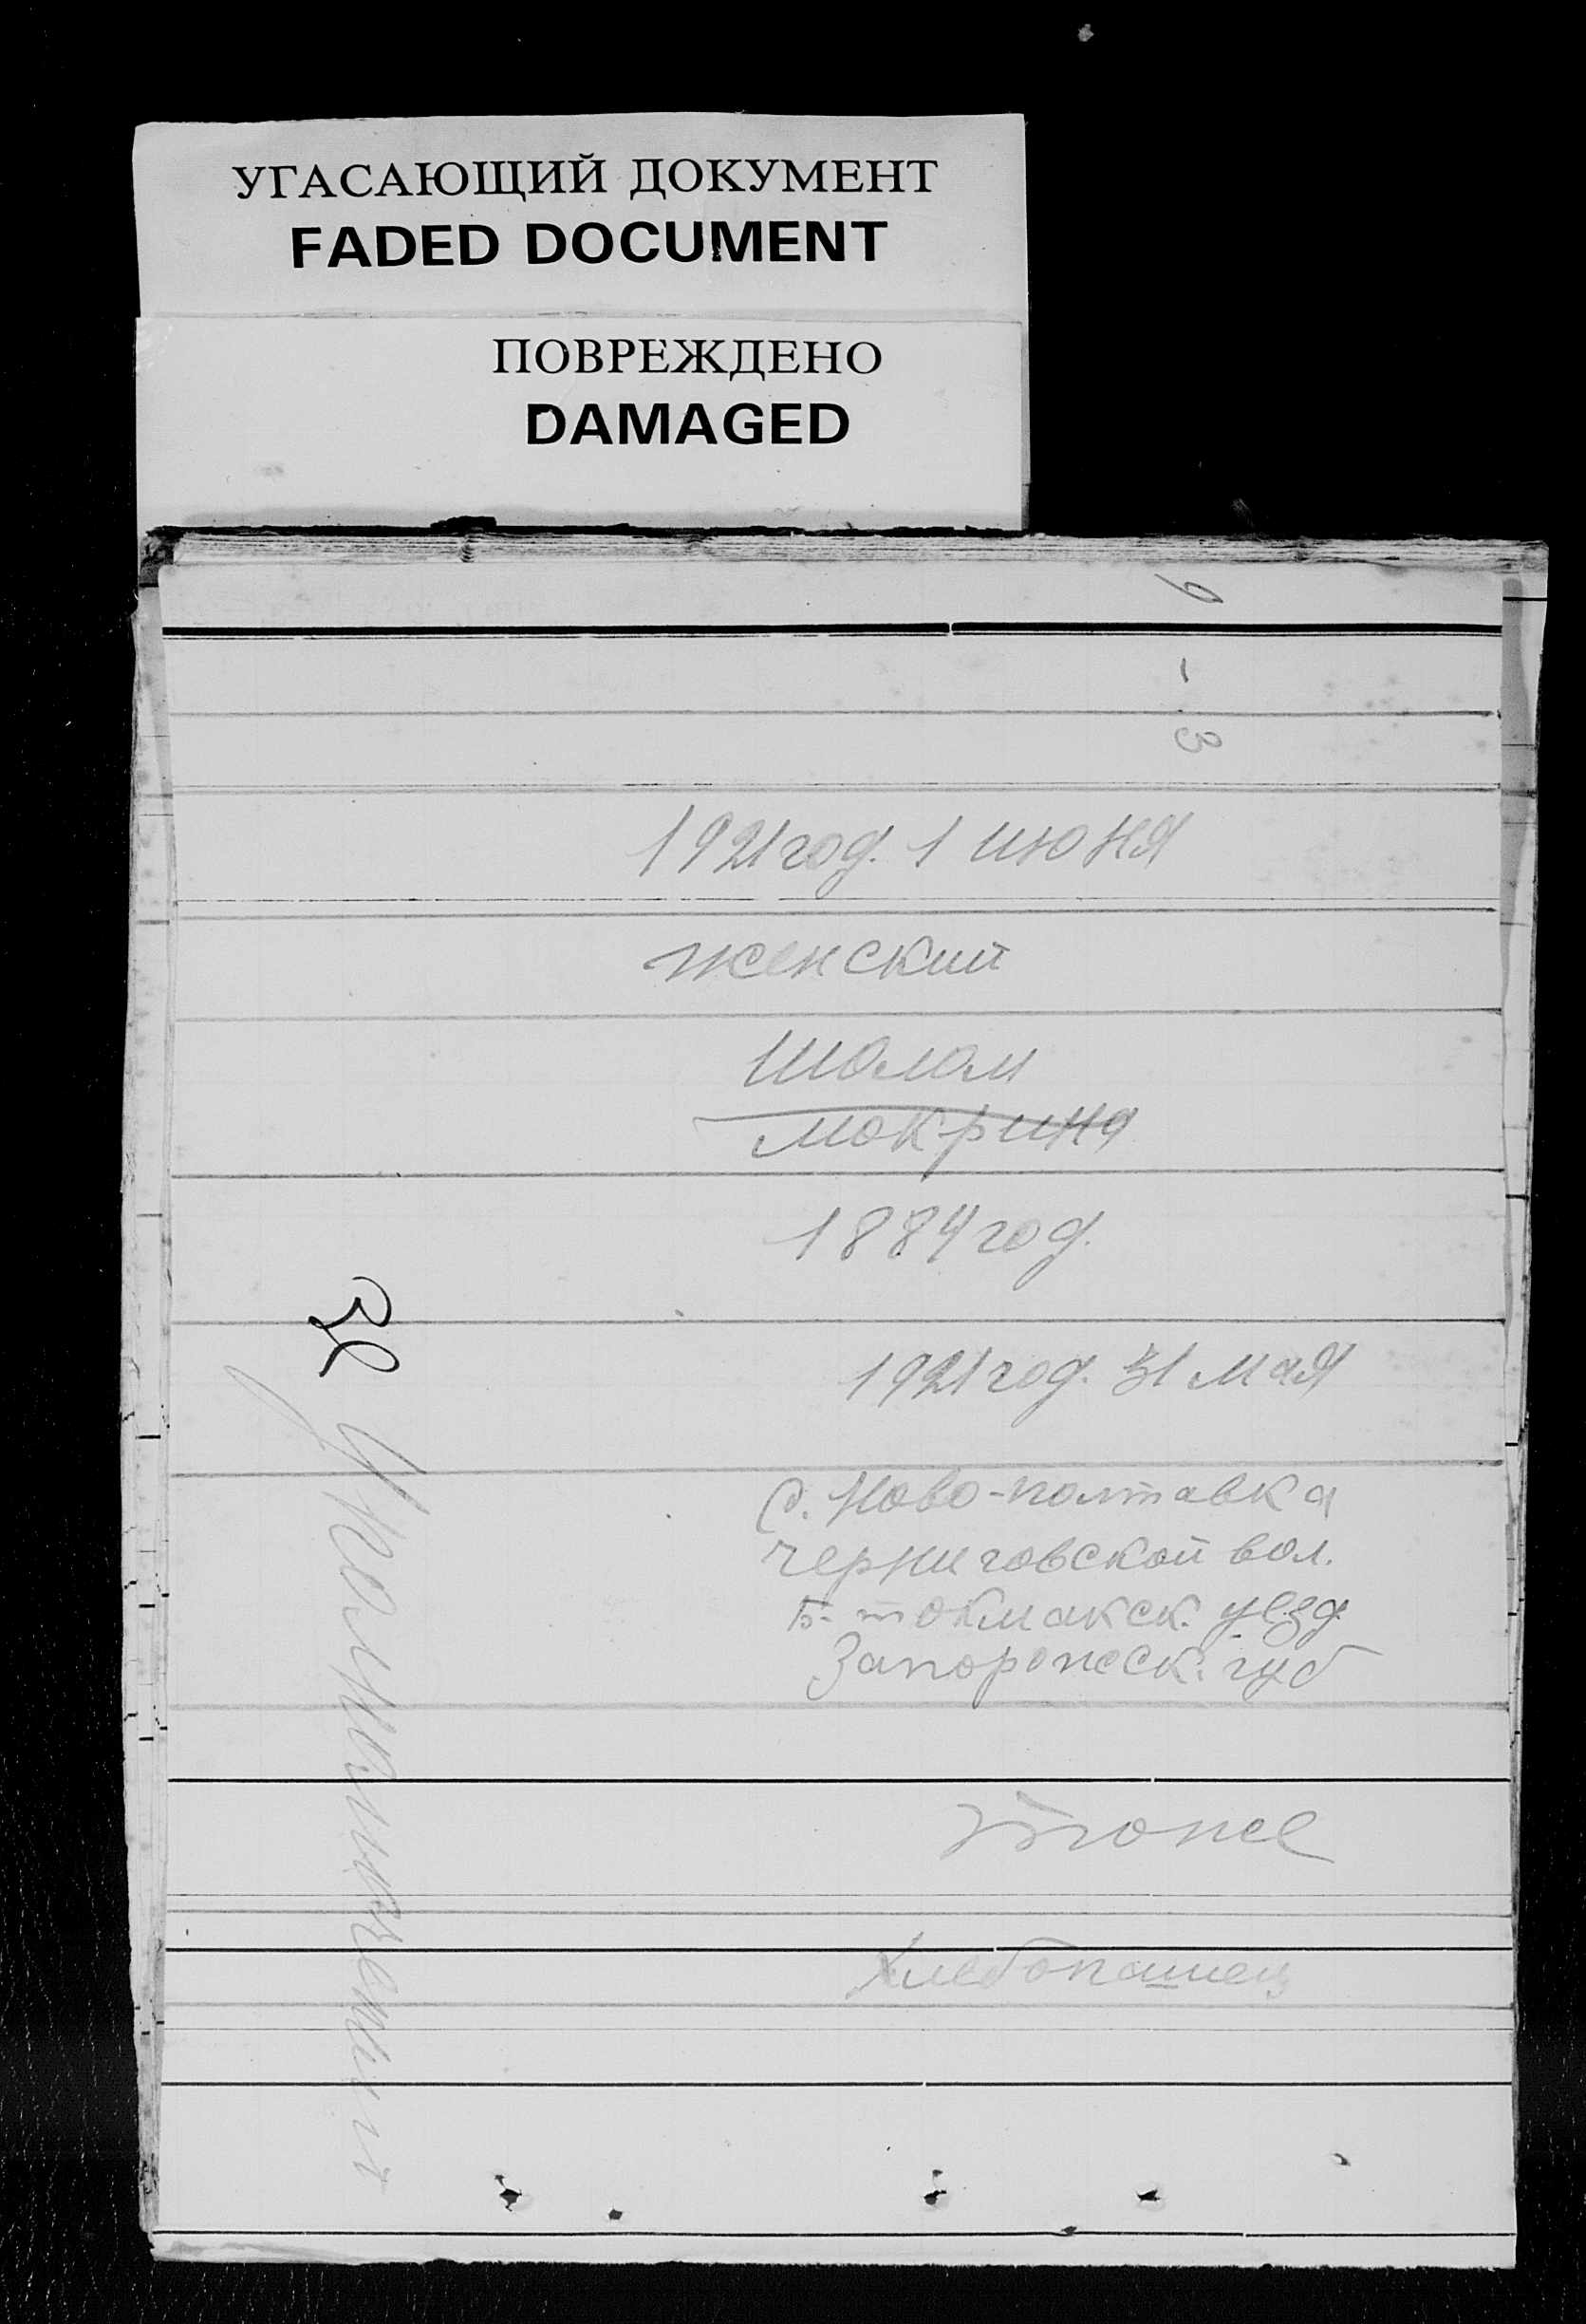 УГАСАЮЩИЙ ДОКУМЕНТ
FADED DOCUMENT
ПОВРЕЖДЕНО
DAMAGED
9 - 3
1921 год. 1 июня
женский
Шолом
мокрина
1884 год.
1921 год. 31 мая
с. Ново-полтавка
черниговской вол.
Б-токмакск. уезд.
Запорожск. губ
тоже
Хлебопашец